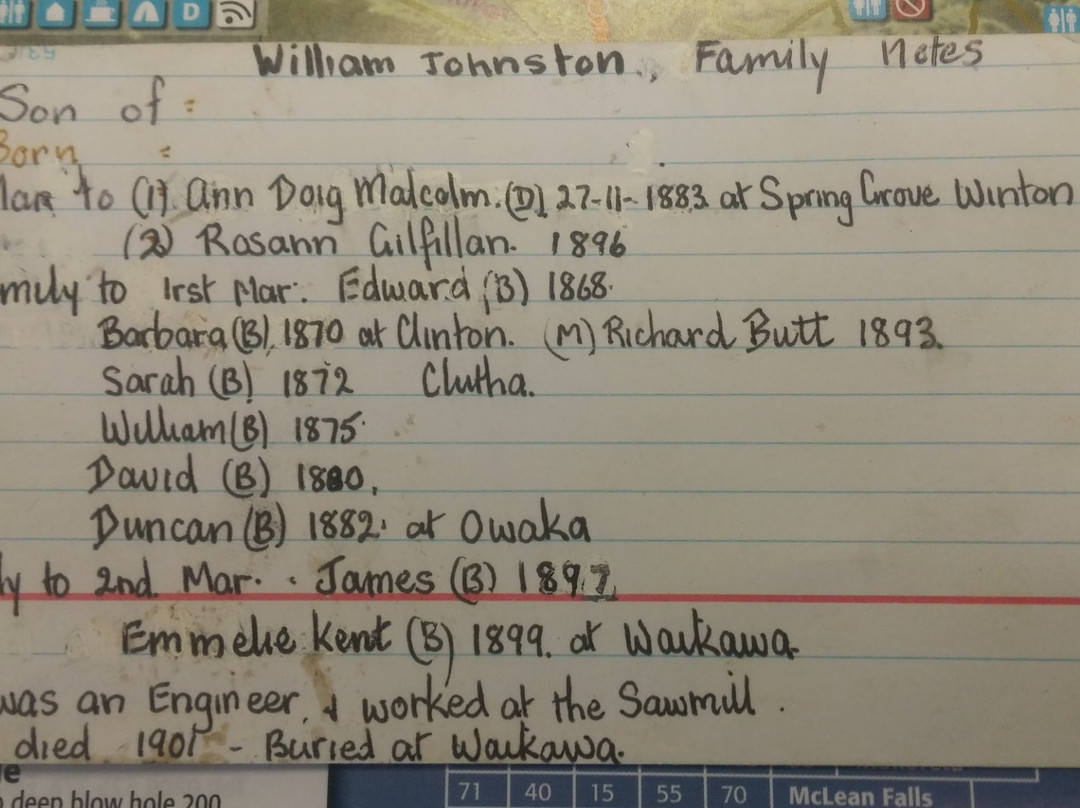 D
William Johnston., Family Notes
Son of :
Born :
Mar to (1). Ann Doig Malcolm. (D) 27-11-1883 at Spring Grove Winton
(2) Rosann Gilfillan. 1896
mily to 1rst Mar. Edward (B) 1868.
Barbara (B). 1870 at Clinton. (M) Richard Butt 1893.
Sarah (B) 1872 Clutha.
William (B) 1875.
David (B) 1880.
Duncan (B) 1882. at Owaka
ly to 2nd Mar. . James (B) 1897.
Emmelie Kent (B) 1899. at Waikawa.
was an Engineer, & worked at the Sawmill .
died 1901 - Buried at Waikawa.
e
deep blow hole 200
71 40 15 55 70 McLean Falls